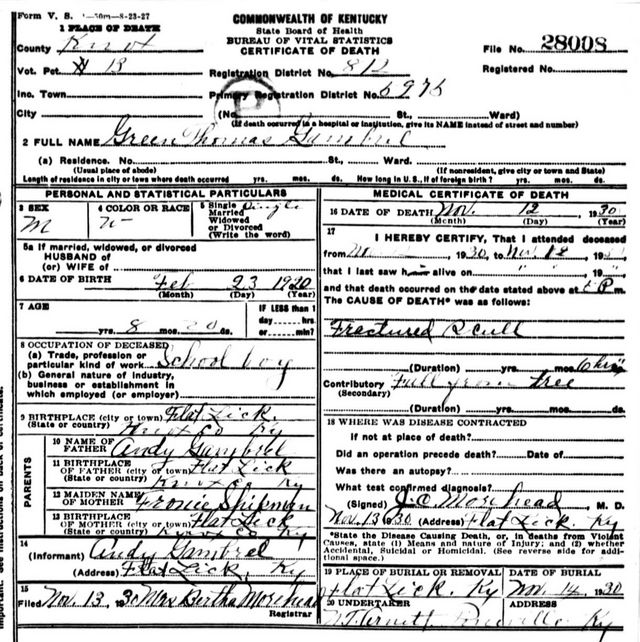 Form V. S. 1-50m-8-23-27
COMMONWEALTH OF KENTUCKY
State Board of Health
BUREAU OF VITAL STATISTICS
CERTIFICATE OF DEATH
1 PLACE OF DEATH
County Knox
File No. 28008
Vot. Pct. # 13
Registration District No. 812
Registered No.
Inc. Town
Primary Registration District No. 6975
City
(No. St., Ward)
(If death occurred in a hospital or institution, give its NAME instead of street and number)
2 FULL NAME Green Thomas Gambrel
(a) Residence. No. St., Ward.
(Usual place of abode) (If nonresident, give city or town and State)
Length of residence in city or town where death occurred yrs. mos. ds. How long in U. S., if of foreign birth? yrs. mos. ds.
PERSONAL AND STATISTICAL PARTICULARS
3 SEX
M
4 COLOR OR RACE
W
5 Single Single
Married
Widowed
or Divorced
(Write the word)
5a If married, widowed, or divorced
HUSBAND of
(or) WIFE of
6 DATE OF BIRTH Feb 23 1920
(Month) (Day) (Year)
7 AGE
yrs. 8 mos. 20 ds.
IF LESS than 1
day hrs.
or min?
8 OCCUPATION OF DECEASED
(a) Trade, profession or
particular kind of work School boy
(b) General nature of industry,
business or establishment in
which employed (or employer)
9 BIRTHPLACE (city or town) Flat Lick
(State or country) Knox Co Ky
PARENTS
10 NAME OF
FATHER Andy Gambrel
11 BIRTHPLACE
OF FATHER (city or town) Flat Lick
(State or country) Knox Co Ky
12 MAIDEN NAME
OF MOTHER Fronie Shipman
13 BIRTHPLACE
OF MOTHER (city or town) Flat Lick
(State or country) Knox Co Ky
14
(Informant) Andy Gambrel
(Address) Flat Lick, Ky
15
Filed Nov. 13, 1930 Mrs Bertha Morehead
Registrar
MEDICAL CERTIFICATE OF DEATH
16 DATE OF DEATH Nov. 12, 1930
(Month) (Day) (Year)
17
I HEREBY CERTIFY, That I attended deceased
from 1930, to Nov 12, 19
that I last saw h alive on 19
and that death occurred on the date stated above at P m.
The CAUSE OF DEATH was as follows:
Fractured Scull
(Duration) yrs. mos. 6 hrs
Contributory Fall from tree
(Secondary)
(Duration) yrs. mos. ds.
18 WHERE WAS DISEASE CONTRACTED
If not at place of death?
Did an operation precede death? Date of
Was there an autopsy?
What test confirmed diagnosis?
(Signed) J. C. Morehead, M. D.
Nov. 13 1930 (Address) Flat Lick. Ky
*State the Disease Causing Death, or, in deaths from Violent
Causes, state (1) Means and nature of Injury; and (2) whether
Accidental, Suicidal or Homicidal. (See reverse side for addi-
tional space.)
19 PLACE OF BURIAL OR REMOVAL
DATE OF BURIAL
Flat Lick, Ky Nov. 14, 1930
20 UNDERTAKER
ADDRESS